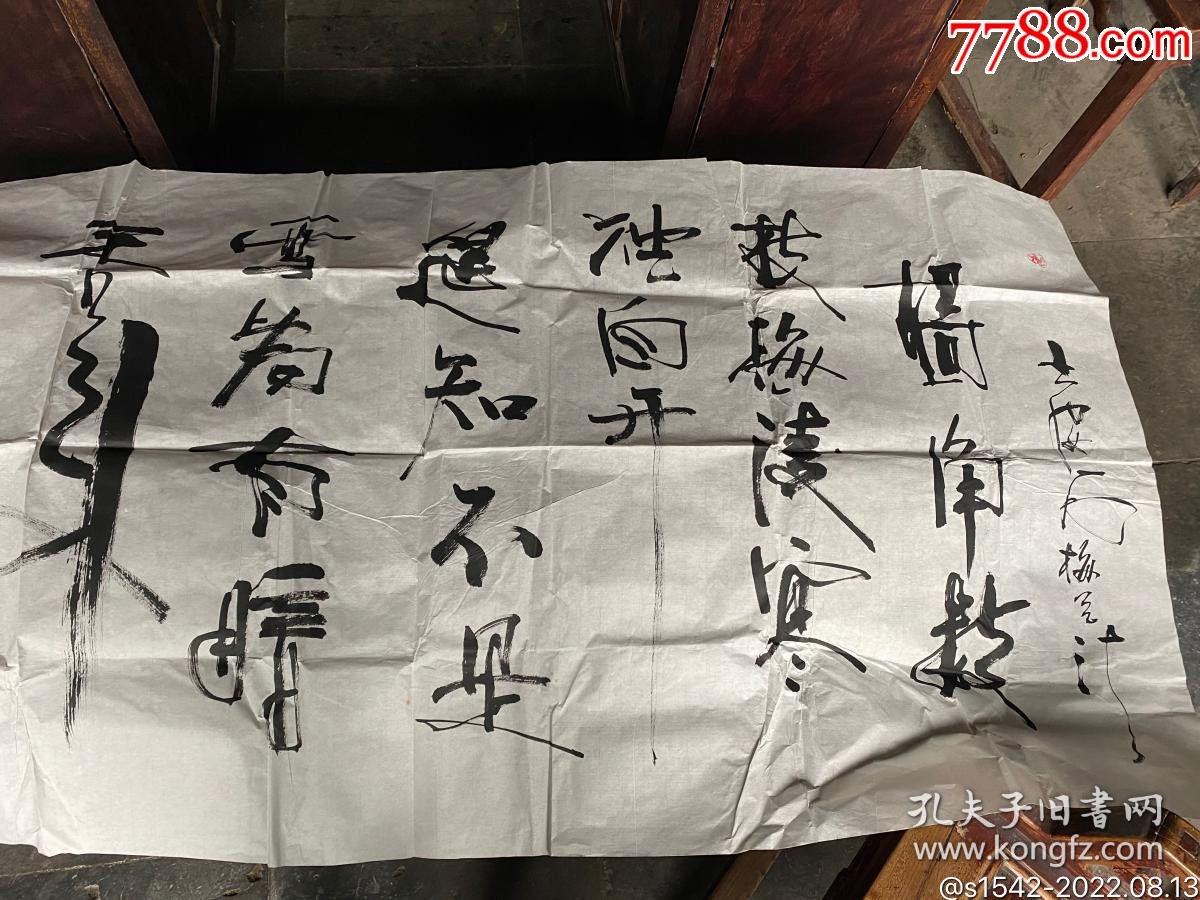 墙角数
枝梅凌寒
独自开
遥知不是
雪为有暗
香来
7788.com
孔夫子旧书网
www.kongfz.com
@s1542-2022.08.13